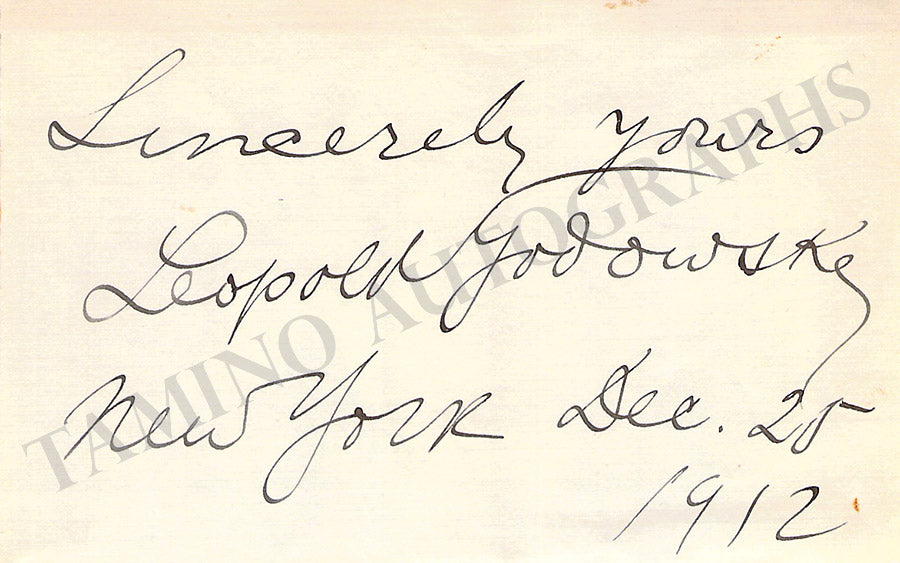 Sincerely yours
Leopold Godowsky
New York Dec. 25
1912
TAMINO AUTOGRAPHS